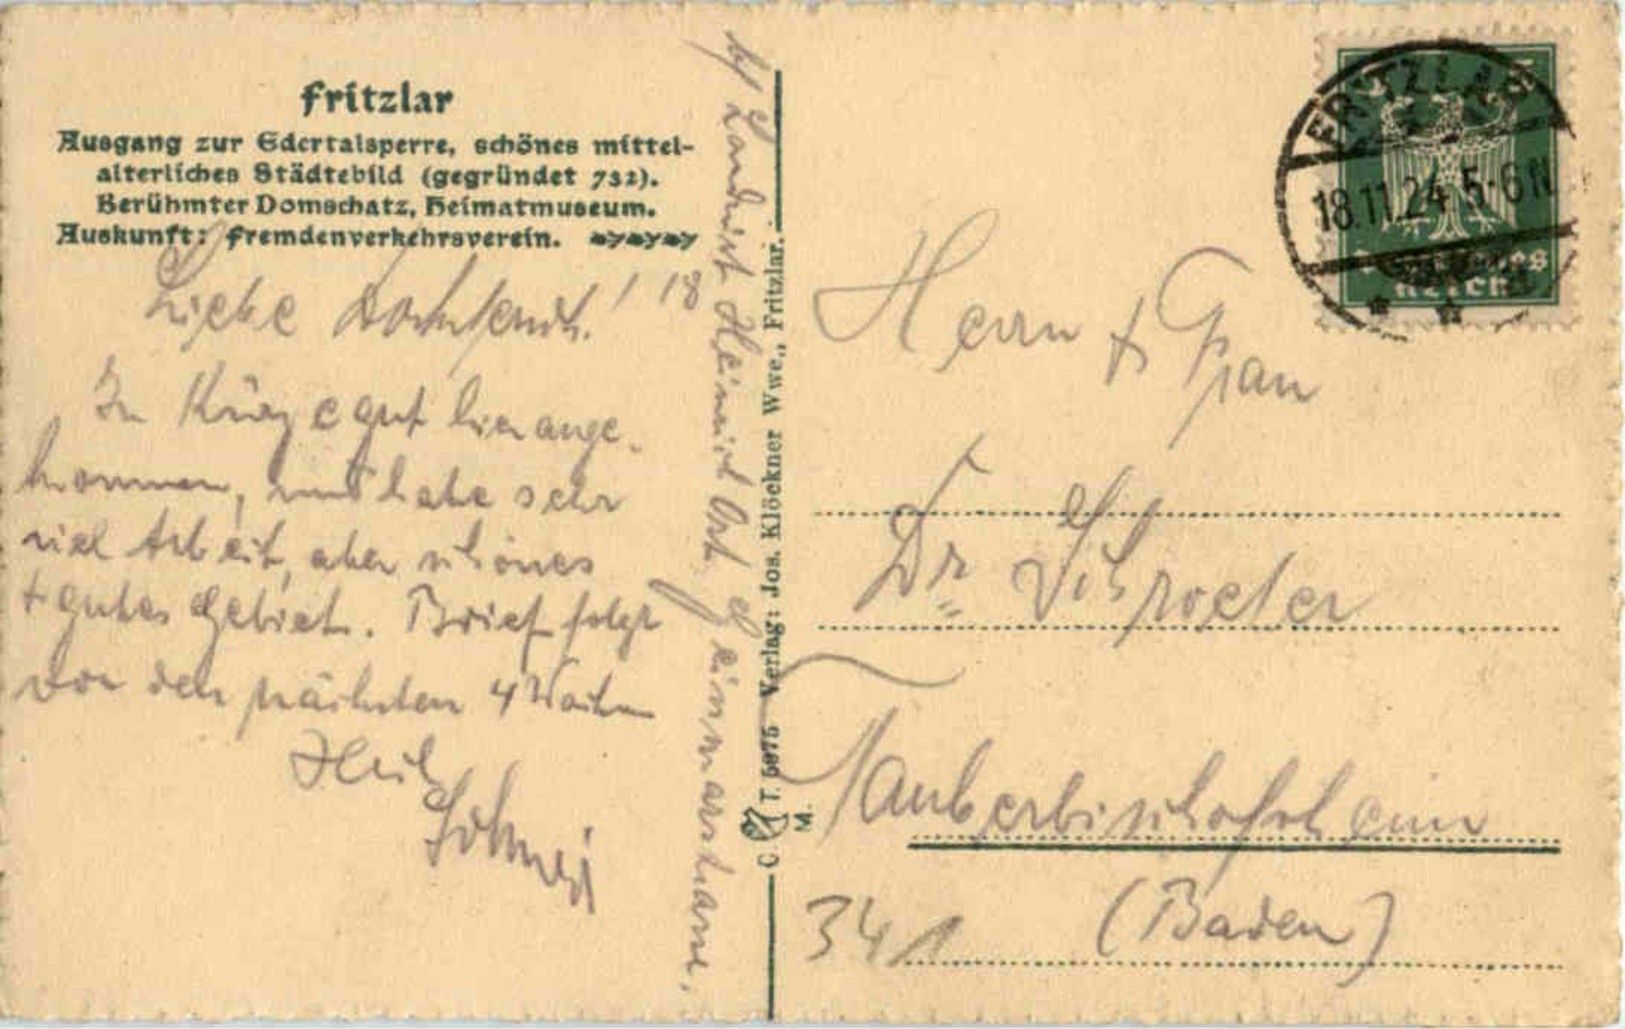 Fritzlar
Ausgang zur Edertalsperre, schönes mittel-
alterliches Städtebild (gegründet 732).
Berühmter Domschatz, Heimatmuseum.
Auskunft: Fremdenverkehrsverein.
Liebe ! 18
In Kürze gut hier ange-
kommen, und habe sehr
viel Arbeit, aber schönes
+ gutes Gebiet. Brief folgt
vor den nächsten 4 Wochen
Heil
b/ Landwirt Heinrich Ort
C T. 5975 Verlag: Jos. Klöckner Wwe., Fritzlar.
M.
FRITZLAR
18.11.24 5-6 N
5
Deutsches
Reich
Herrn + Frau
Dr Schroeter
Tauberbischofsheim
(Baden)
341